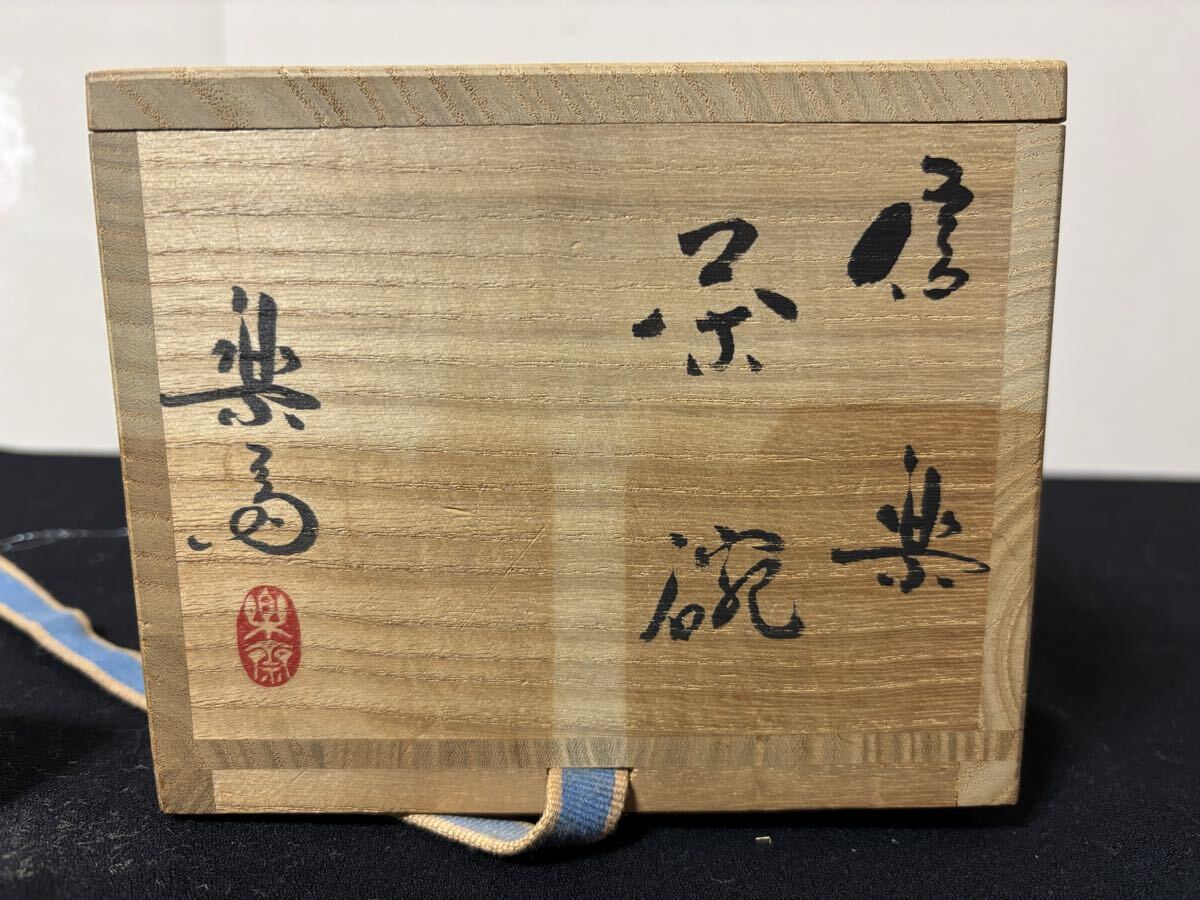 信楽
茶碗
楽斎
楽斎